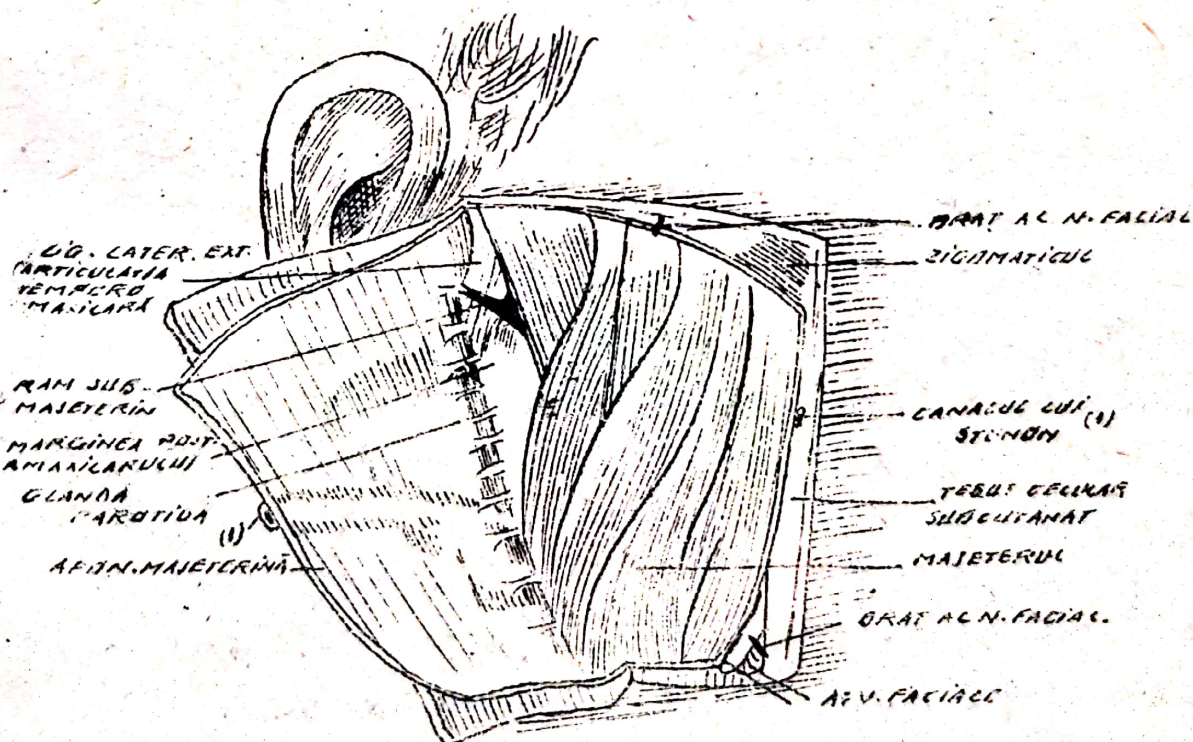 LIG. LATER. EXT.
ARTICULATIA
TEMPORO
MAXILARĂ
RAM SUB-
MASETERIN
MARGINEA POST.
A MAXILARULUI
GLANDA
PAROTIDA
(1)
APON. MASETERINĂ
BRAȚ AL N. FACIAL
ZIGOMATICUL
CANALUL LUI (1)
STENON
ȚESUT CELULAR
SUBCUTANAT
MASETERUL
BRAT AL N. FACIAL.
A.V. FACIALE